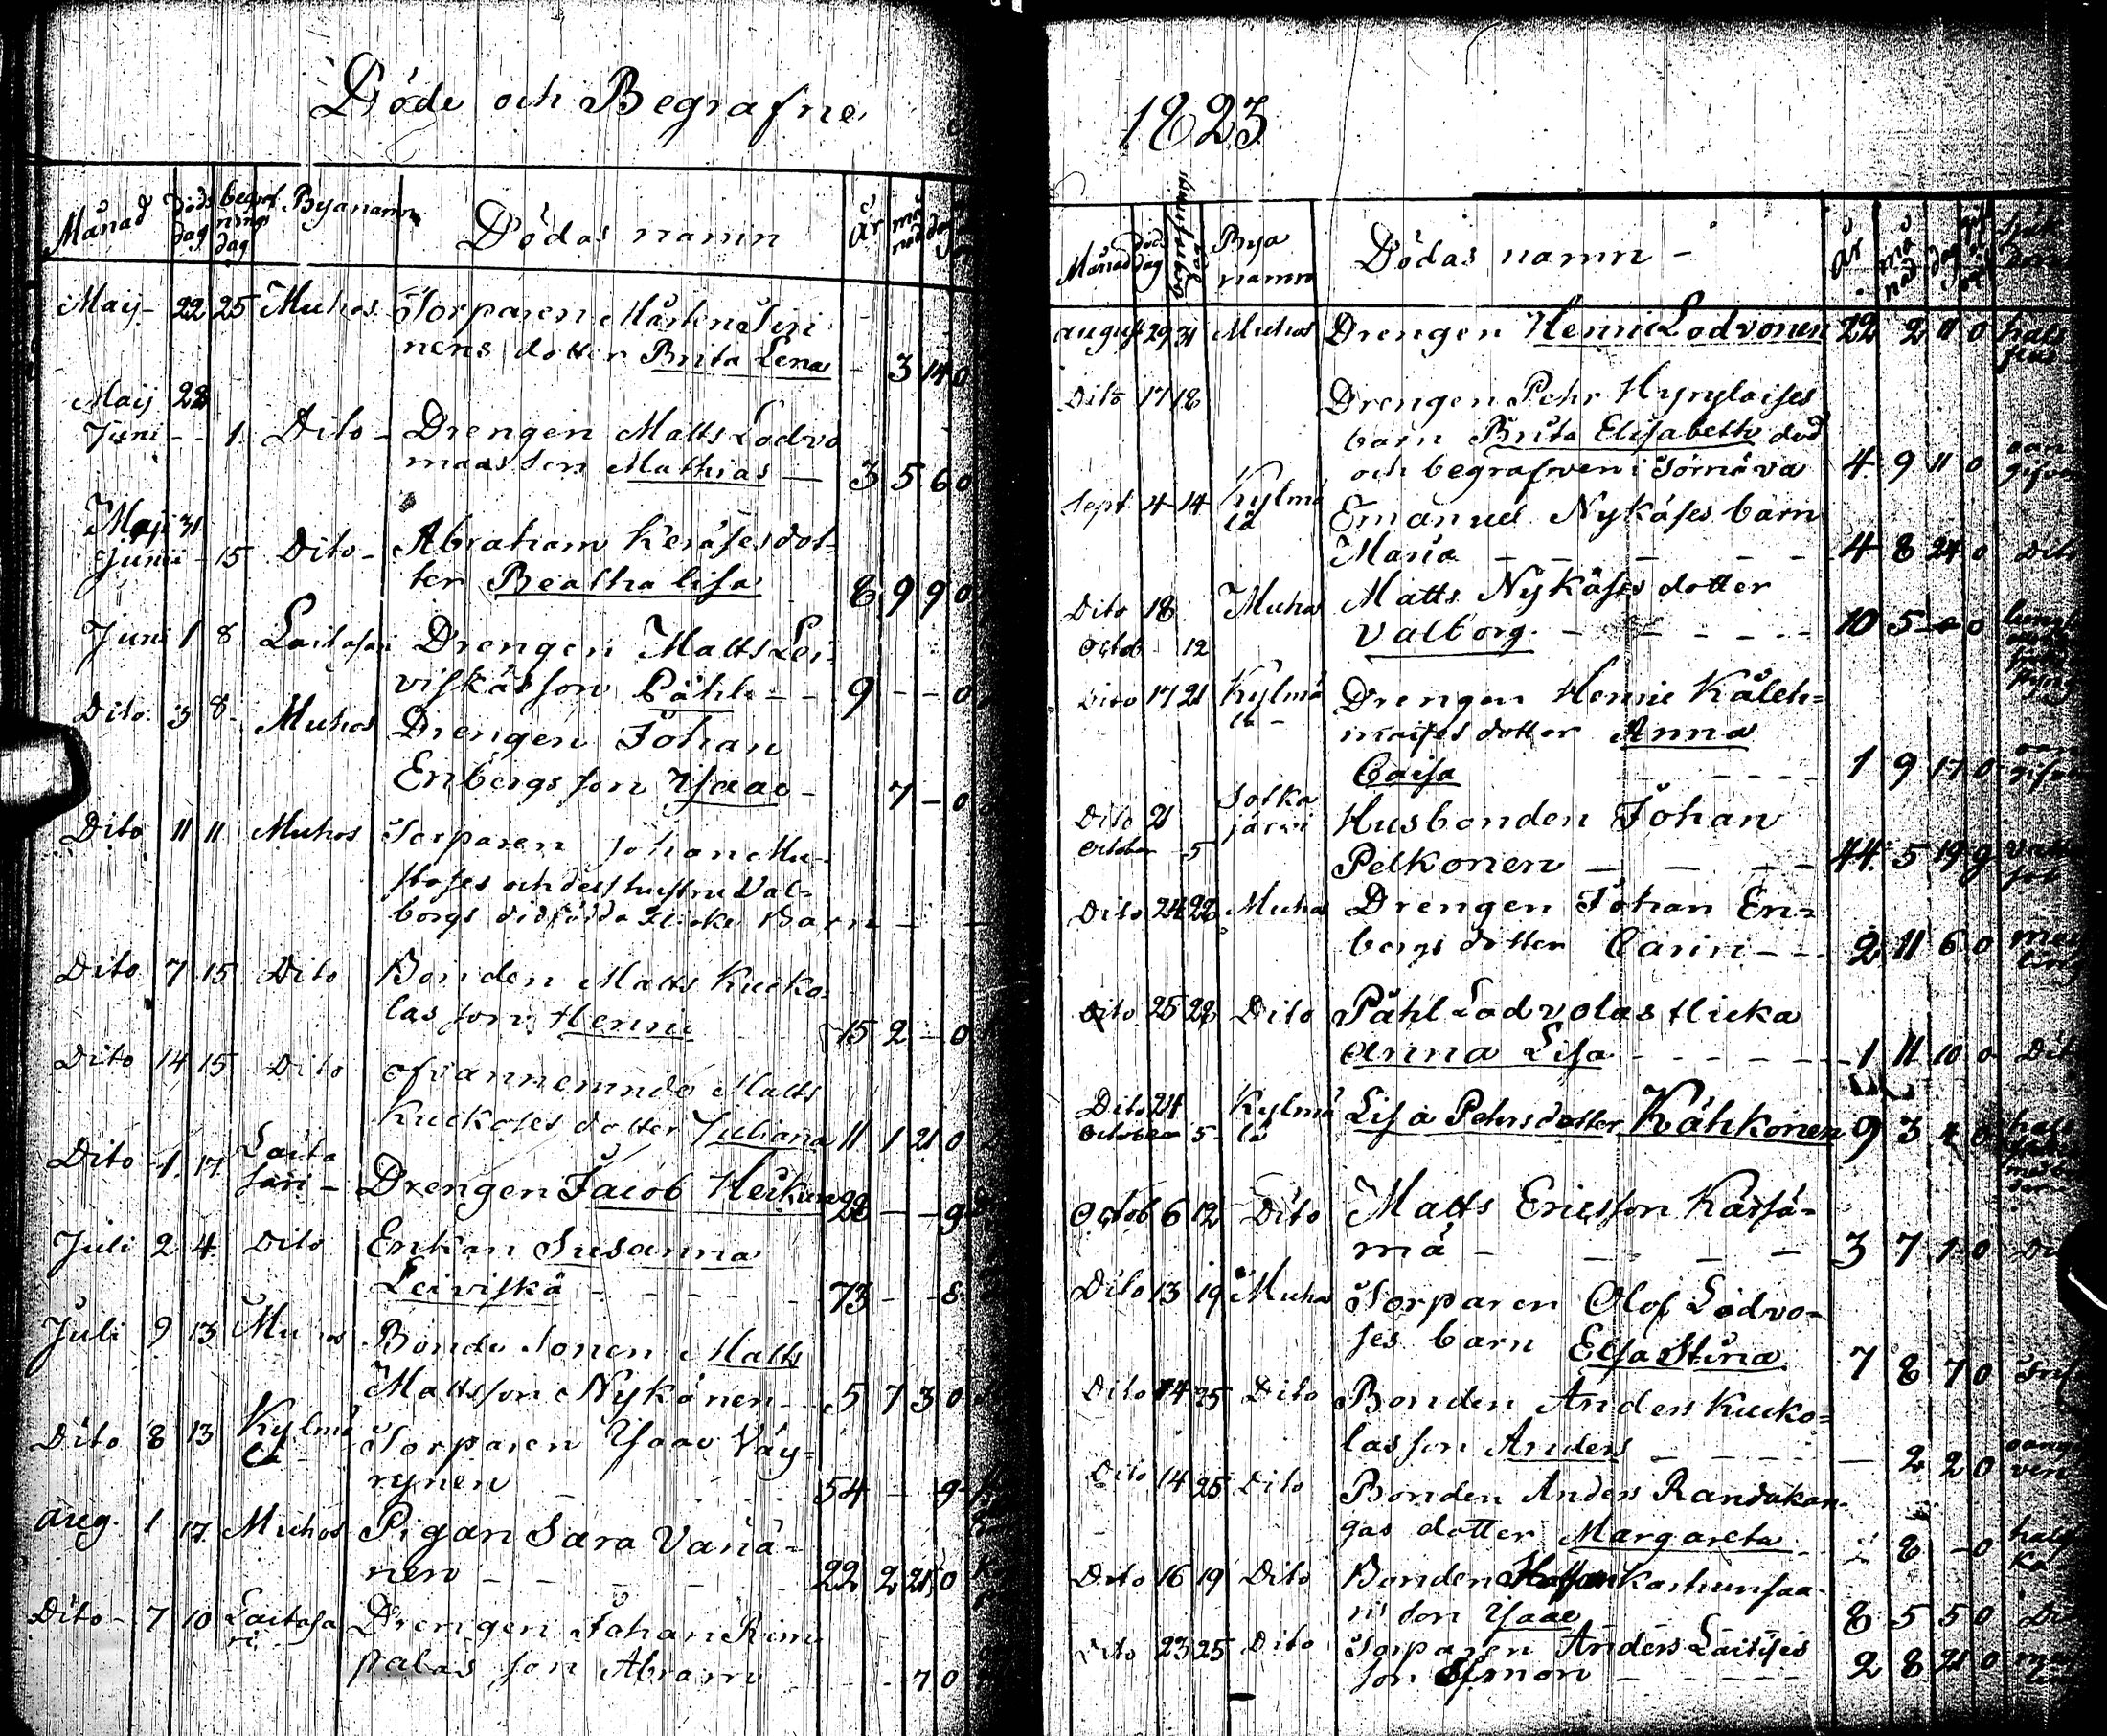 Döde och Begrafne
Månad döds dag begrafnings dag Byanamn Dödas namn år månad dag
Maij 22 25 Muhos Torparen Mårten Jsri
nens dotter Brita Lena - 3 14 0
Maij 28
Juni - - 1 Dito - Drengen Matts Lodvo
maas son Mathias - 3 5 6 0
Maji 31
Junii - 15 Dito - Abraham Keräses dot-
ter Beatha lisa 8 9 9 0
Juni 1 8 Laitasari Drengen Matts Lei-
viskäs son Påhl - - 9 - - 0
Dito 3 8 Muhos Drengen Johan
Enbergs son Isaac - 7 - 0
Dito 11 11 Muhos Torparen Johan Mu-
stoses och dess hustru Val-
borgs dödfödda Barn - -
Dito 7 15 Dito Bonden Matts Kucko-
las son Henric 15 2 - 0
Dito 14 15 Dito ofvannemnde Matts
Kuckoses dotter Juliana 11 1 21 0
Dito 1 17 Laita
sari - Drengen Jacob Heikin 22 - - g
Juli 2 4 Dito Enkan Susanna
Leiviskä - - - - - 73 - - e
Juli 9 13 Muhos Bonde Sonen Matts
Mattsson Nykänen - - 5 7 3 0
Dito 8 13 Kylmä
lä Torparen Isaac Väy-
rynen 54 - - g
aug. 1 17 Muhos Pigan Sara Vänä-
nen - - - - - 22 2 21 0
Dito - 7 10 Laitasa
ri Drengen Johan Rim
palas son Abram - - 7 0
1823
Månad döds dag begrafnings dag Bya
namn Dödas namn - år månad dag
august 29 31 Muhos Drengen Henric Lodvonen 22 2 11 0 hals
Dito 17 18 Drengen Pehr Hyryläises
barn Brita Elisabetta död
och begrafven i Törnäva 4 9 11 0
Sept 4 14 Kylmä
lä Emanuel Nykäses barn
Maria - - - - - 4 8 24 0 Dito
Dito 18 Muhos Matts Nykäses dotter
Octob - 12 Valborg - - - - - 10 5 - 0
Dito 17 21 Kylmä
lä - Drengen Henric Käleh-
maises dotter Anna
Caisa - - - - - 1 9 17 0
Dito 21 Sotka
järvi Husbonden Johan
October - 5 Pelkonen - - - - 44 5 19 g
Dito 24 28 Muhos Drengen Johan En-
bergs dotter Carin - - - 2 11 6 0
Dito 25 28 Dito Påhl Lodvolas flicka
Anna Lisa - - - - - 1 11 10 0 Dito
Dito 24 Kylmä
October 5 lä Lisa Pehrsdotter Kähkönen 9 3 4 0
Octob 6 12 Dito Matts Ericsson Kärsä-
mä - - - - - 3 7 1 0
Dito 13 19 Muhos Torparen Olof Lodvo-
ses barn Elsa Stina 7 8 7 0
Dito 14 25 Dito Bonden Anders Kucko-
las son Anders - - - - - 2 2 0
Dito 14 25 Dito Bonden Anders Randakan-
gas dotter Margareta - - 8 - 0
Dito 16 19 Dito Bonden Karhunsaa-
ris son Isaac 8 5 5 0
Dito 23 25 Dito Torparen Anders Laitises
son Simon - - - - - 2 8 21 0